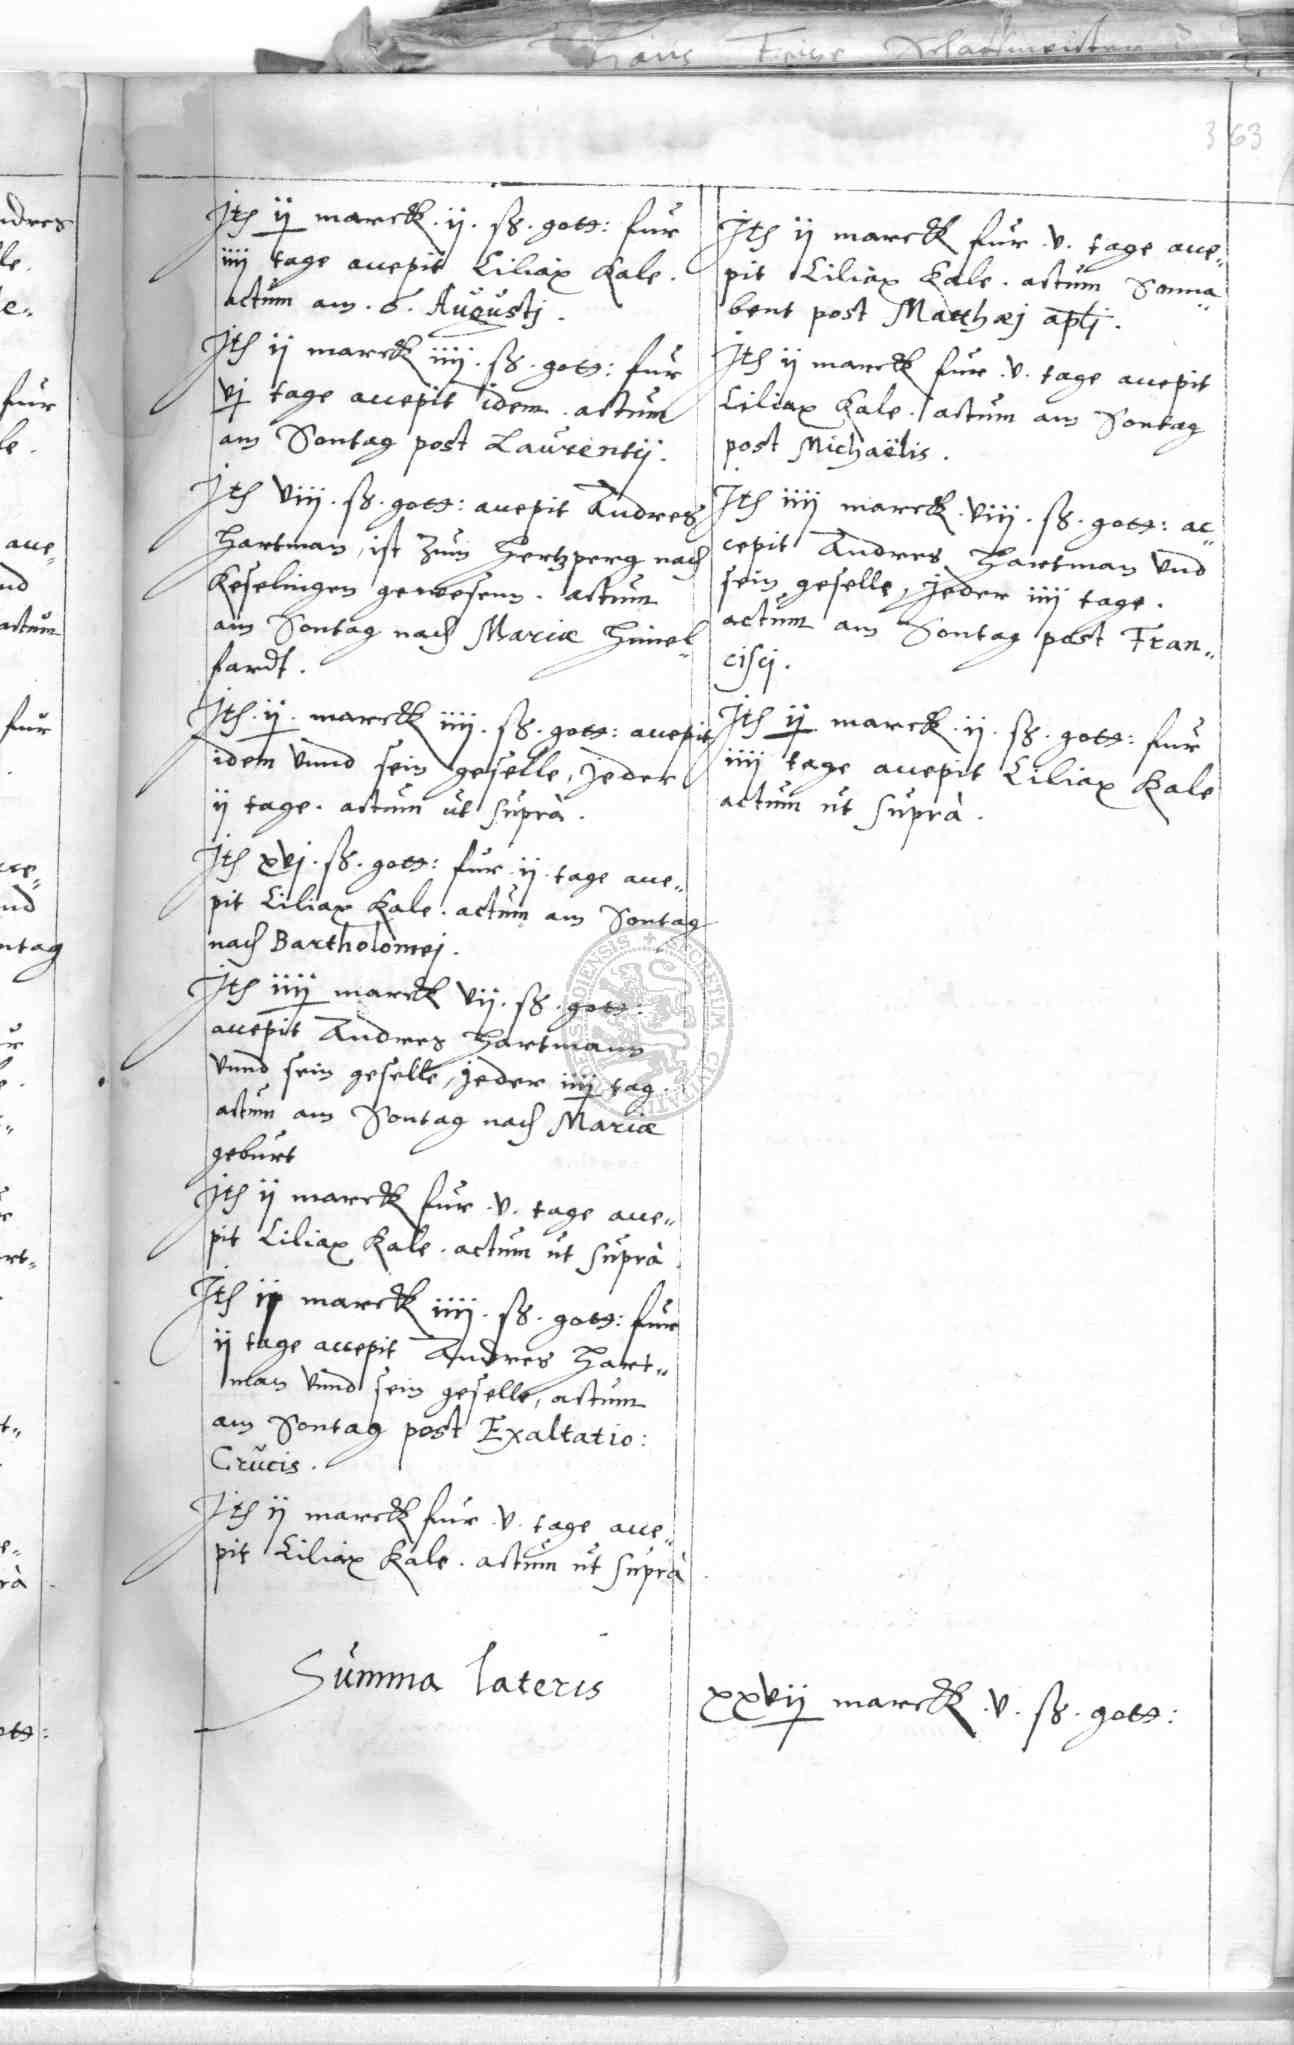 363
Jtẽ ij marck. ij. ß. gotß: fur
iiij tage accepit Ciliax Kale.
actum am. 6. Augustj.
Jtẽ ij marck iiij. ß. gotß: fur
vj tage accepit idem. actum
am Sontag post Laurentij.
Jtẽ viij. ß. gotß: accepit Andres
Hartman, ist zum Hertzperg nach
Keselingen gewesenn. actum
am Sontag nach Mariæ Himel„
fardt.
Jtẽ. ij. marck iiij. ß. gotß: accepit
idem vnnd sein geselle, Jeder
ij tage. actum ut suprà.
Jtẽ xvj. ß. gotß: fur. ij. tage acce„
pit Ciliax Kale. actum am Sontag
nach Bartholomej.
Jtẽ iiij marck vij. ß. gotß:
accepit Andres Hartmann
vnnd sein geselle, Jeder iiij tag.
actum am Sontag nach Mariæ
geburt
Jtẽ ij marck fur. v. tage acce„
pit Ciliax Kale. actum ut suprà.
Jtẽ ij marck iiij. ß. gotß: fur
ij tage accepit Andres Hart„
man vnnd sein geselle, actum
am Sontag post Exaltatio:
Crucis.
Jtẽ ij marck fur. v. tage acce„
pit Ciliax Kale. actum ut suprà
Jtẽ ij marck fur. v. tage acce„
pit Ciliax Kale. actum Sonna„
bent post Matthæj aplj.
Jtẽ ij marck fur. v. tage accepit
Ciliax Kale. actum am Sontag
post Michaëlis.
Jtẽ iiij marck. viij. ß. gotß: ac„
cepit Andres Hartman vnd
sein geselle, Jeder iiij tage.
actum am Sontag post Fran„
cisci.
Jtẽ ij marck. ij. ß. gotß: fur
iiij tage accepit Ciliax Kale
actum ut suprà.
Summa lateris
xxvij marck. v. ß. gotß: